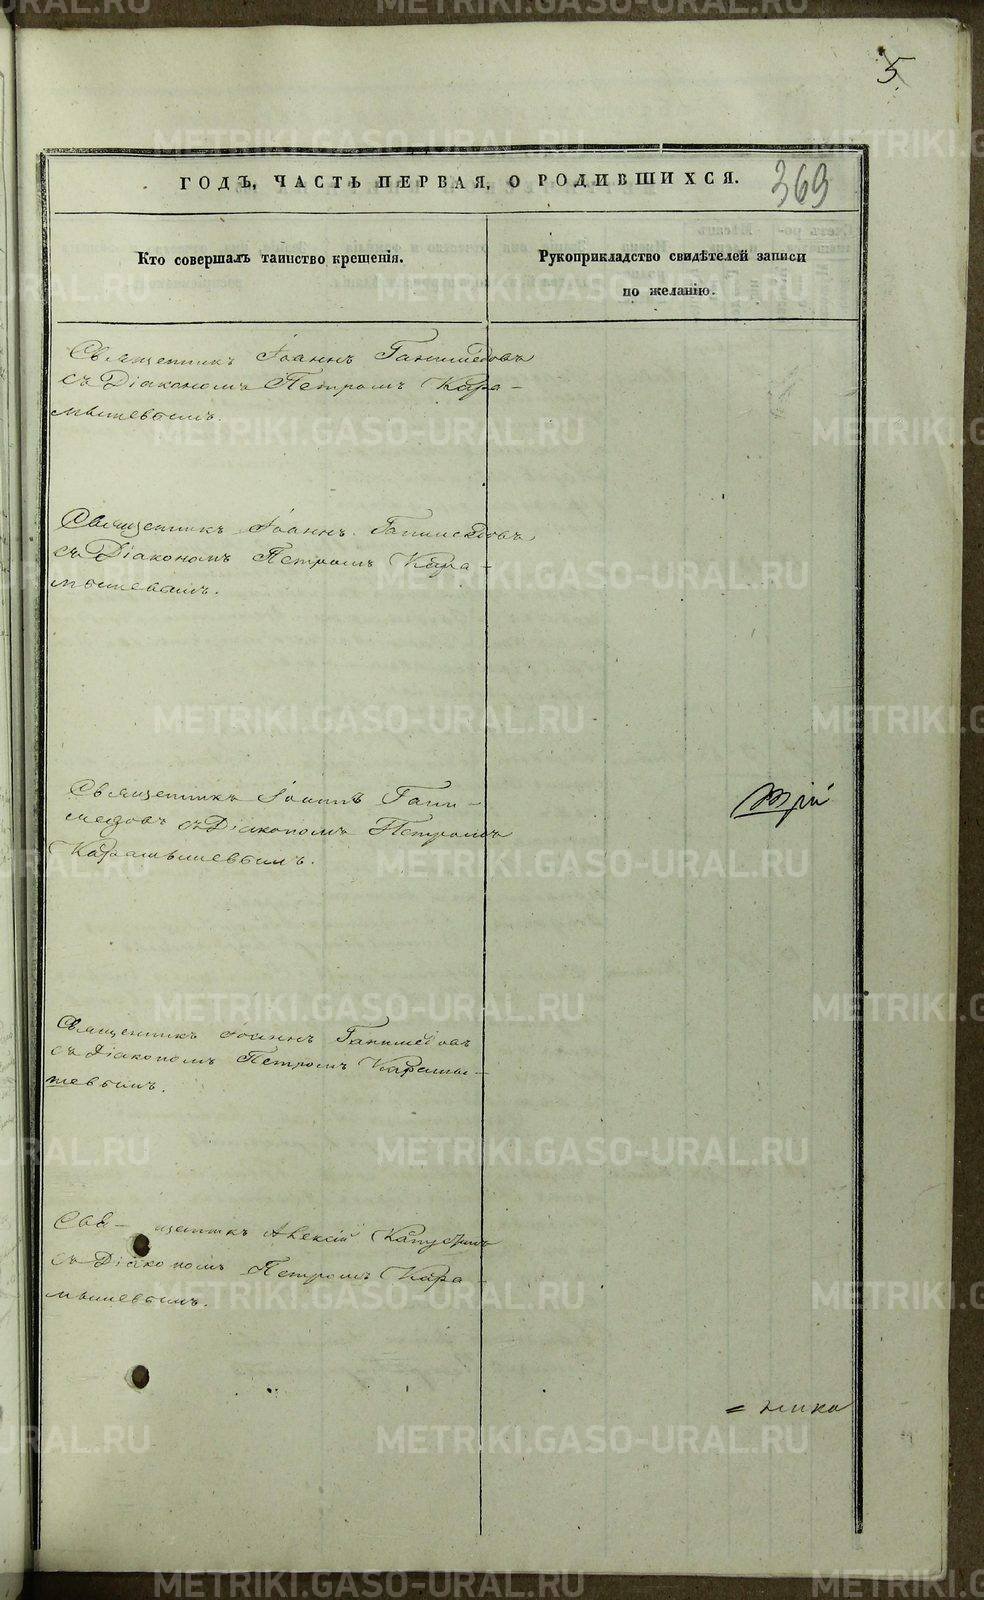 5.
ГОДЪ, ЧАСТЬ ПЕРВАЯ, О РОДИВШИХСЯ.
369
Кто совершалъ таинство крещенія.
Рукоприкладство свидѣтелей записи
по желанію.
Священникъ Іоаннъ Ганимедовъ
съ Діакономъ Петромъ Кара-
мышевымъ.
Священникъ Іоаннъ Ганимедовъ
съ Діакономъ Петромъ Кара-
мышевымъ.
Священникъ Іоаннъ Гани-
медовъ съ Діакономъ Петромъ
Карамышевымъ.
Священникъ Іоаннъ Ганимедовъ
съ Діакономъ Петромъ Карамы-
шевымъ.
Свя- щенникъ Алексій Капустинъ
съ Діакономъ Петромъ Кара-
мышевымъ.
METRIKI.GASO-URAL.RU